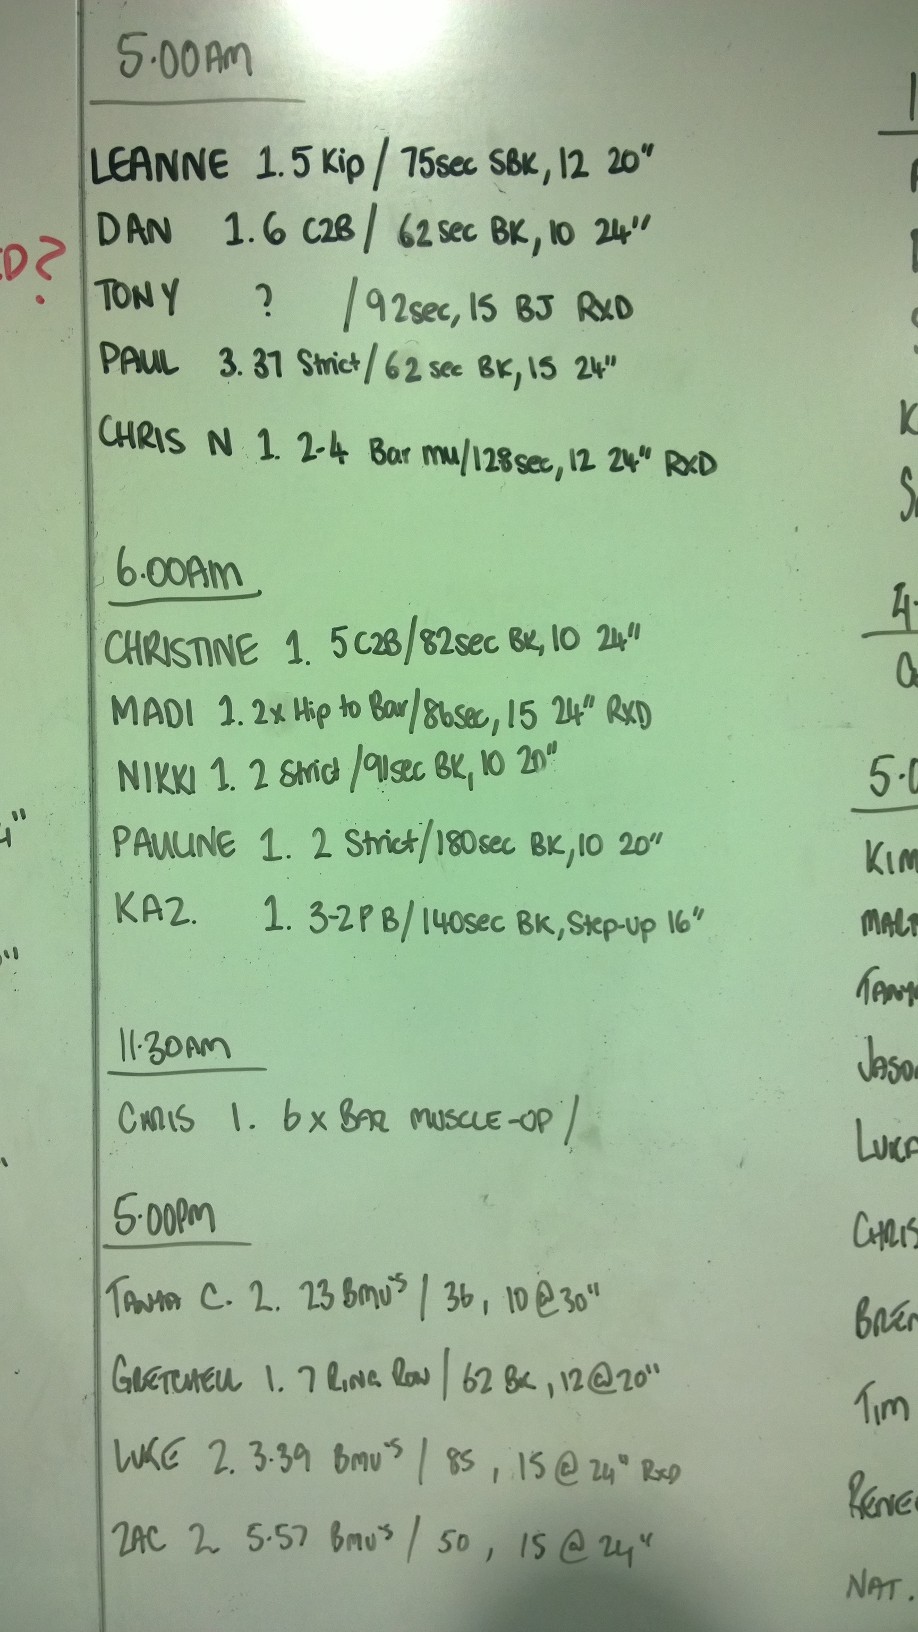 5.00AM
LEANNE 1. 5 Kip / 75sec SBK, 12 20"
DAN 1. 6 C2B / 62 sec BK, 10 24"
TONY ? / 92sec, 15 BJ RXD
PAUL 3. 37 Strict / 62 sec BK, 15 24"
CHRIS N 1. 2-4 Bar mu/128sec, 12 24" RXD
6.00AM
CHRISTINE 1. 5 C2B/82sec BK, 10 24"
MADI 1. 2x Hip to Bar/86sec, 15 24" RXD
NIKKI 1. 2 Strict /91sec BK, 10 20"
PAULINE 1. 2 Strict/180sec BK, 10 20"
KAZ. 1. 3-2 P B/140sec BK, Step-up 16"
11.30AM
CHRIS 1. 6 x BAR MUSCLE-UP /
5.00PM
TANYA C. 2. 23 BMU's / 36, 10@30"
GRETCHELL 1. 7 RING ROW / 62 BK, 12@20"
LUKE 2. 3.39 BMU's / 85, 15 @ 24" RXD
ZAC 2 5.57 BMU's / 50, 15 @ 24"
D?
KIM
JASO
CHRIS
BREN
TIM
RENE
NAT.